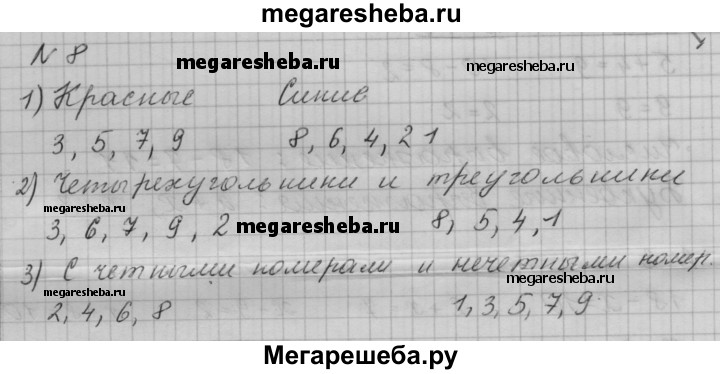 megaresheba.ru
N 8
megaresheba.ru
1) Красные Синие
megaresheba.ru
3, 5, 7, 9 8, 6, 4, 2 1
2) Четырехугольники и треугольники
megaresheba.ru
3, 6, 7, 9, 2 8, 5, 4, 1
megaresheba.ru
3) С четными номерами и нечетными номер.
megaresheba.ru
megaresheba.ru
2, 4, 6, 8 1, 3, 5, 7, 9
Мегарешеба.ру